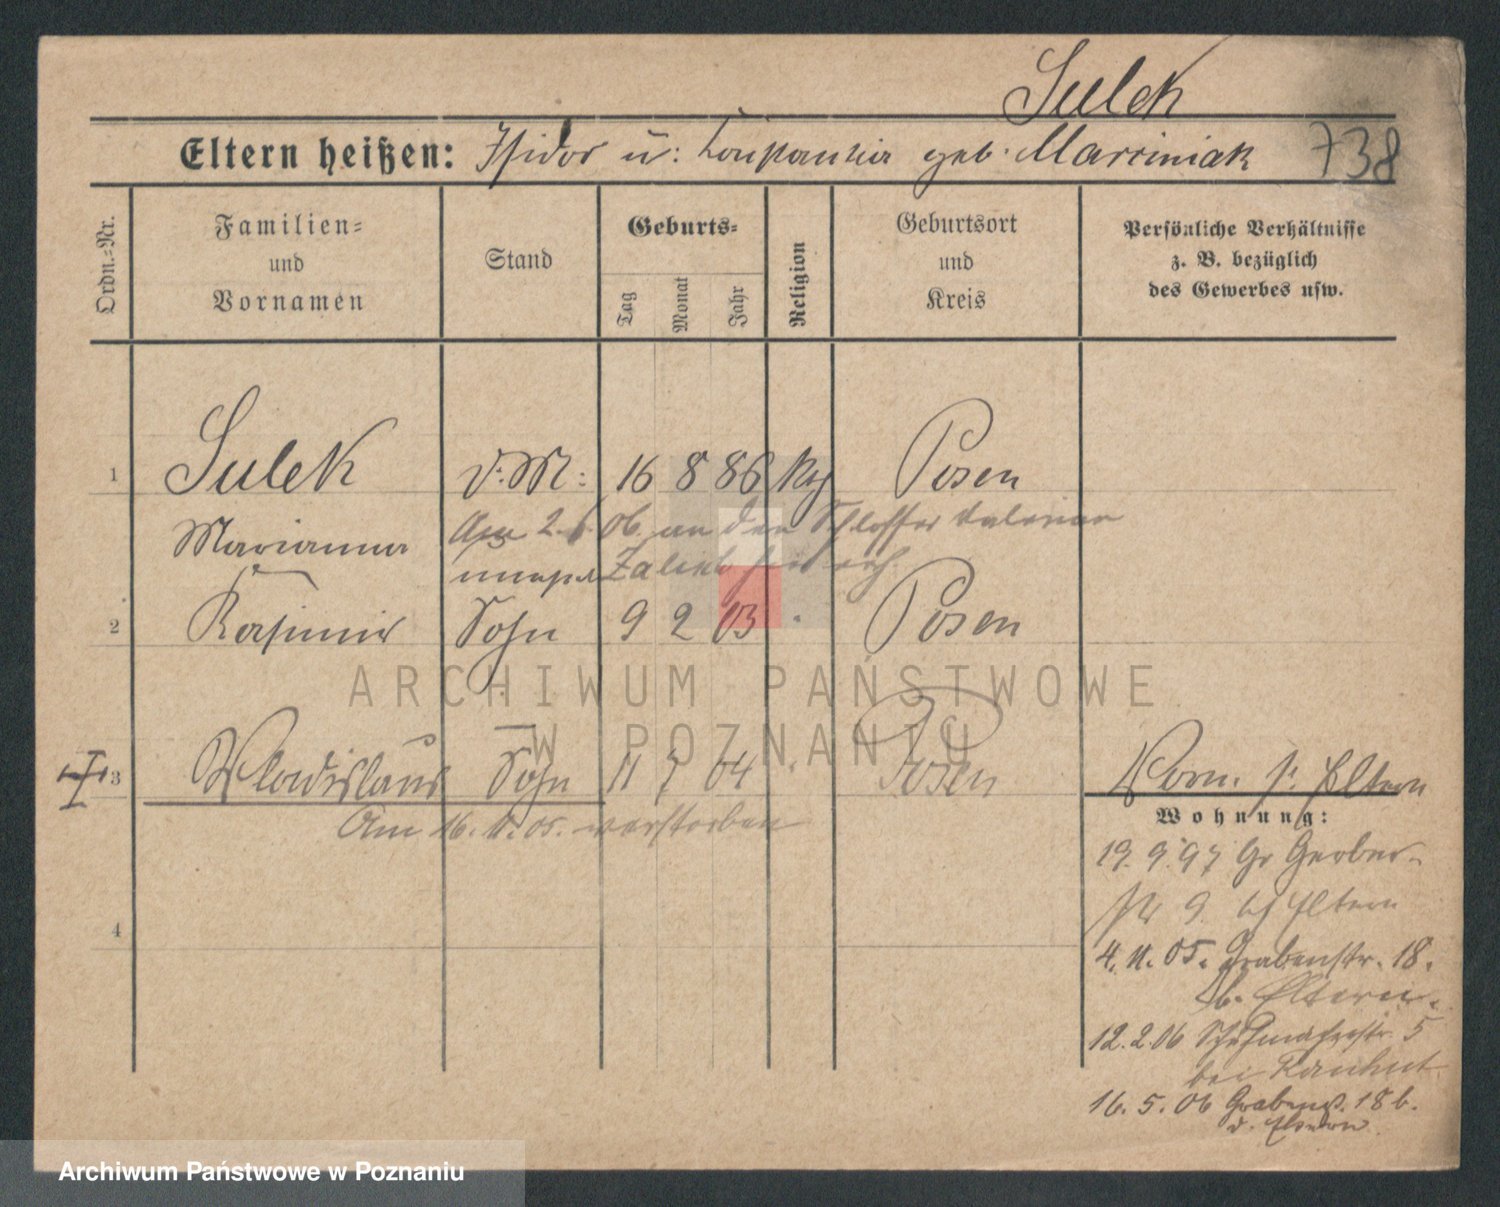 Sulek
Eltern heißen: Isidor u: Konstantia geb. Marciniak 738
Ordn.=Nr.
Familien=
und
Vornamen
Stand
Geburts=
Tag
Monat
Jahr
Religion
Geburtsort
und
Kreis
Persönliche Verhältnisse
z. B. bezüglich
des Gewerbes usw.
1 Sulek d: M: 16 8 86 Posen
Marianna Am 2. 06. an den Schlosser Valerian
2 Kasimir Sohn 9 2 03 Posen
ARCHIWUM PAŃSTWOWE
W POZNANIU
3 Wladislaus Sohn 11 7 04 Posen
Vorm. s. Eltern
Am 16. 11. 05. verstorben
Wohnung:
19. 9. 97 Gr Gerber-
str 9. Eltern
4
4. 11. 05. Grabenstr. 18.
b. Eltern.
12. 2. 06 Schuhmacherstr. 5
bei
16. 5. 06 Grabenstr. 18 b.
d. Eltern
Archiwum Państwowe w Poznaniu